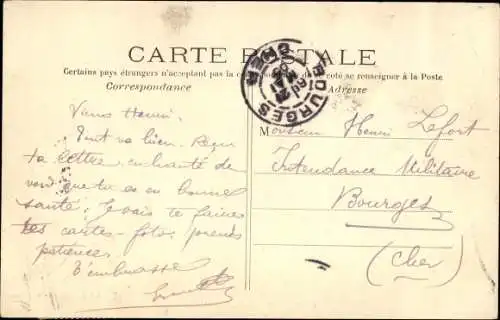 CARTE POSTALE
Certains pays étrangers n'acceptant pas la co côté se renseigner à la Poste
Correspondance
Adresse
BOURGES
CHER
21
09
Henri.
Tout va bien. Reçu
ta lettre, enchanté de
voir que tu es en bonne
santé. Je vais te faire
tes cartes-foto, prends
patience.
T'embrasse
Monsieur Henri Lefort
Intendance Militaire
Bourges
(Cher)